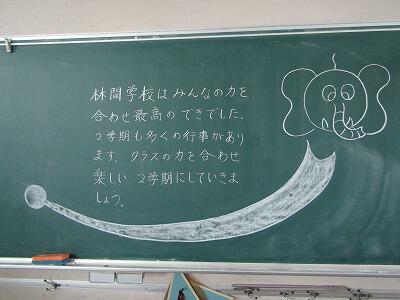 林間学校はみんなの力を
合わせ最高のできでした.
2学期も多くの行事があり
ます. クラスの力を合わせ
楽しい 2学期にしていきま
しょう。